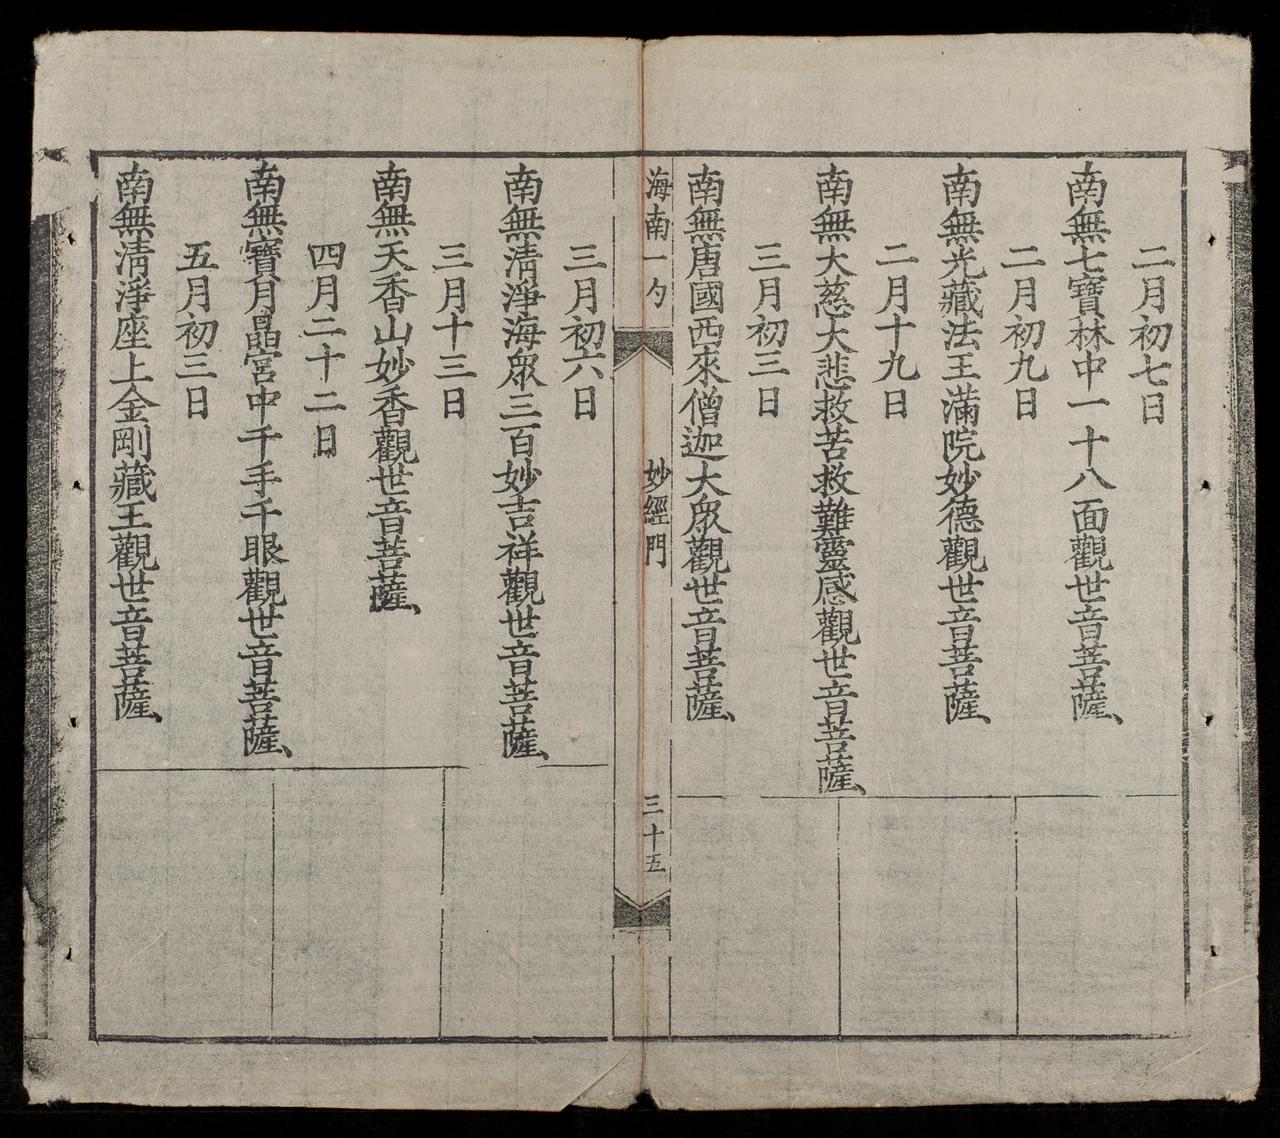 二月初七日
南無七寶林中一十八面觀世音菩薩、
二月初九日
南無光藏法王滿院妙德觀世音菩薩、
二月十九日
南無大慈大悲救苦救難靈感觀世音菩薩、
三月初三日
南無唐國西來僧迦大眾觀世音菩薩、
海南一勺
妙經門
三十五
三月初六日
南無清淨海眾三百妙吉祥觀世音菩薩、
三月十三日
南無天香山妙香觀世音菩薩、
四月二十二日
南無寶月晶宮中千手千眼觀世音菩薩、
五月初三日
南無清淨座上金剛藏王觀世音菩薩、